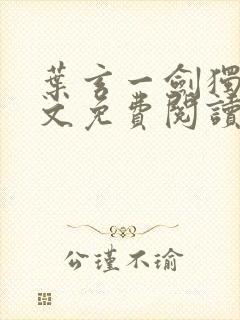 葉玄一劍獨
文免費閱讀
公瑾不瑜